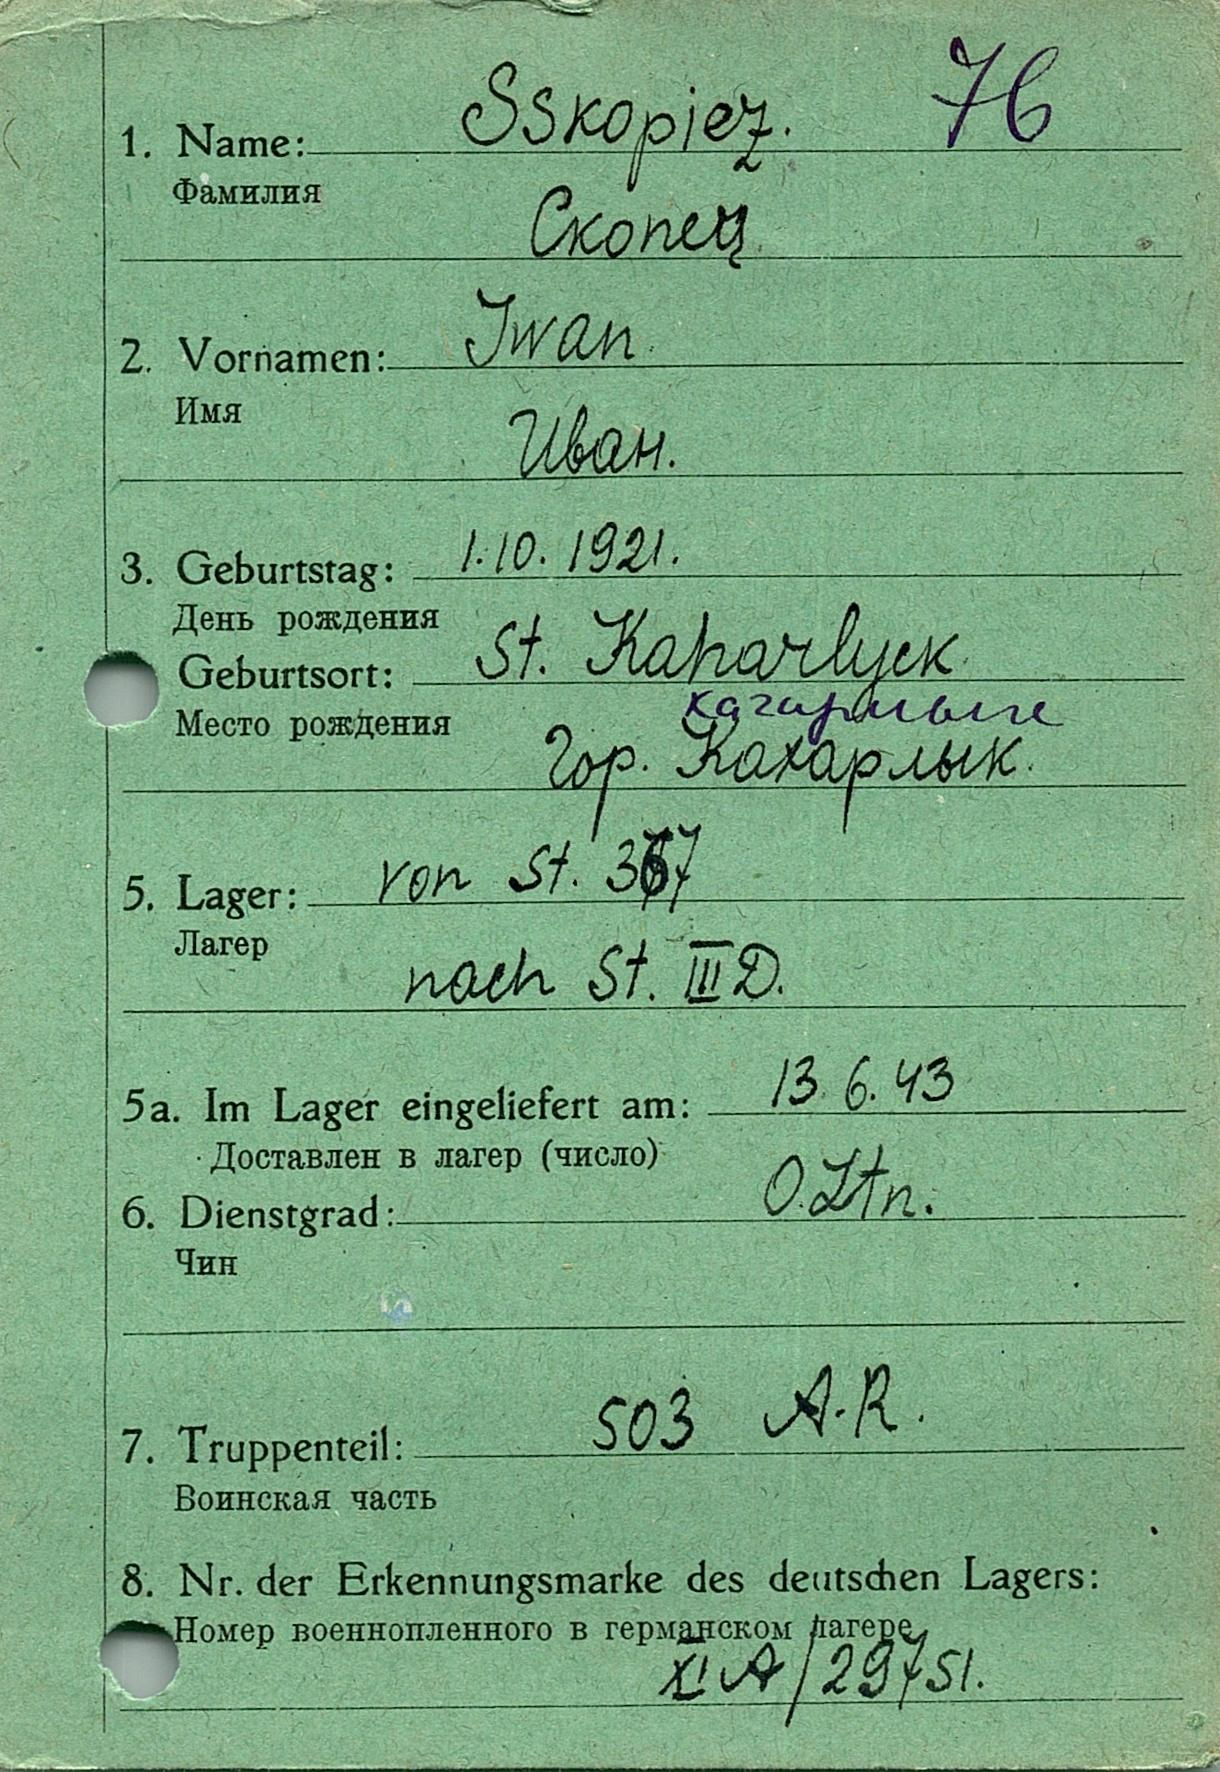 76
1. Name: Sskopiez.
Фамилия
Скопец.
2. Vornamen: Iwan.
Имя
Иван.
3. Geburtstag: 1.10.1921.
День рождения
Geburtsort: St. Kaharlyck.
Место рождения
кагарлыке
Гор. Кахарлык.
5. Lager: von St. 367
Лагер
nach St. III D.
5a. Im Lager eingeliefert am: 13.6.43
Доставлен в лагер (число)
6. Dienstgrad: O.Ltn.
Чин
7. Truppenteil: 503 A.R.
Воинская часть
8. Nr. der Erkennungsmarke des deutschen Lagers:
Номер военнопленного в германском лагере
XI A/29751.